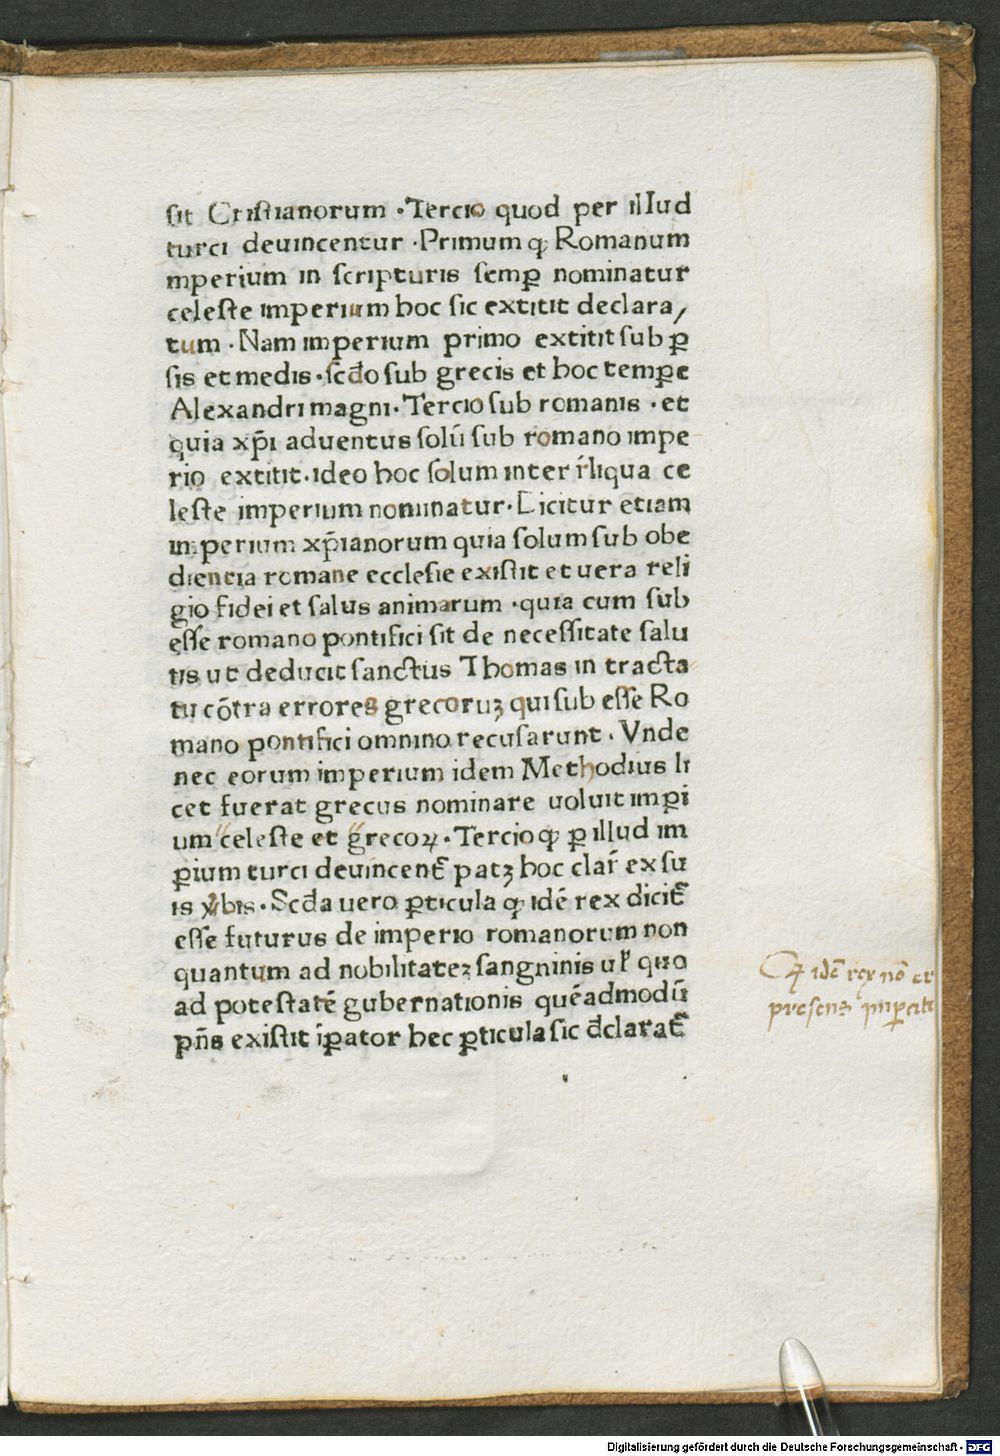 sit Cristianorum · Tercio quod per illud
turci deuincentur · Primum ꝙ Romanum
mperium in scripturis semꝑ nominatur
celeste imperium hoc sic extitit declara/
tum · Nam imperium primo extitit sub ꝑ
sis et medis · scd̄o sub grecis et hoc temꝑe
Alexandri magni · Tercio sub romanis · et
quia xp̄i aduentus solū sub romano impe
rio extitit · ideo hoc solum inter r̄liqua ce
leste imperium nominatur · Dicitur etiam
imperium xp̄ianorum quia solum sub obe
diencia romane ecclesie existit et uera reli
gio fidei et salus animarum · quia cum sub
esse romano pontifici sit de necessitate salu
tis ut deducit sanctus Thomas in tracta
tu cōtra errores grecoruꝫ qui sub esse Ro
mano pontifici omnino recusarunt · Vnde
nec eorum imperium idem Methodius li
cet fuerat grecus nominare uoluit imꝑi
um celeste et grecoꝝ · Tercio ꝙ ꝑ illud im
ꝑium turci deuincent᷑ patꝫ hoc clar̄ ex su
is ꝟbis · Scd̄a uero ꝑticula ꝙ idē rex dicit᷑
esse futurus de imperio romanorum non
quantum ad nobilitateꝫ sangninis ul̓ quo
ad potestatē gubernationis quēadmodū
pn̄s existit īꝑator hec ꝑticula sic d̄clarat᷑
Ꝙ idē rex nō er
presens imꝑat
Digitalisierung gefördert durch die Deutsche Forschungsgemeinschaft - DFG